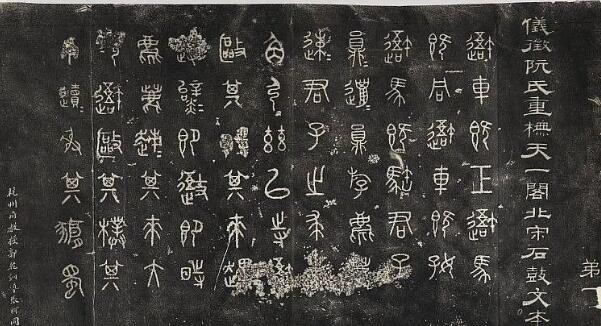 第一
儀徵阮氏重橅天一閣北宋石鼓文本
避車既工避馬
既同避車既好
避馬既駓君子
員邋員斿麀
速君子之求
角弓茲以寺避
敺其其來趩
即避即時
麀鹿趚其來大
避敺其樸其
來趩射其豜蜀
杭州府教授